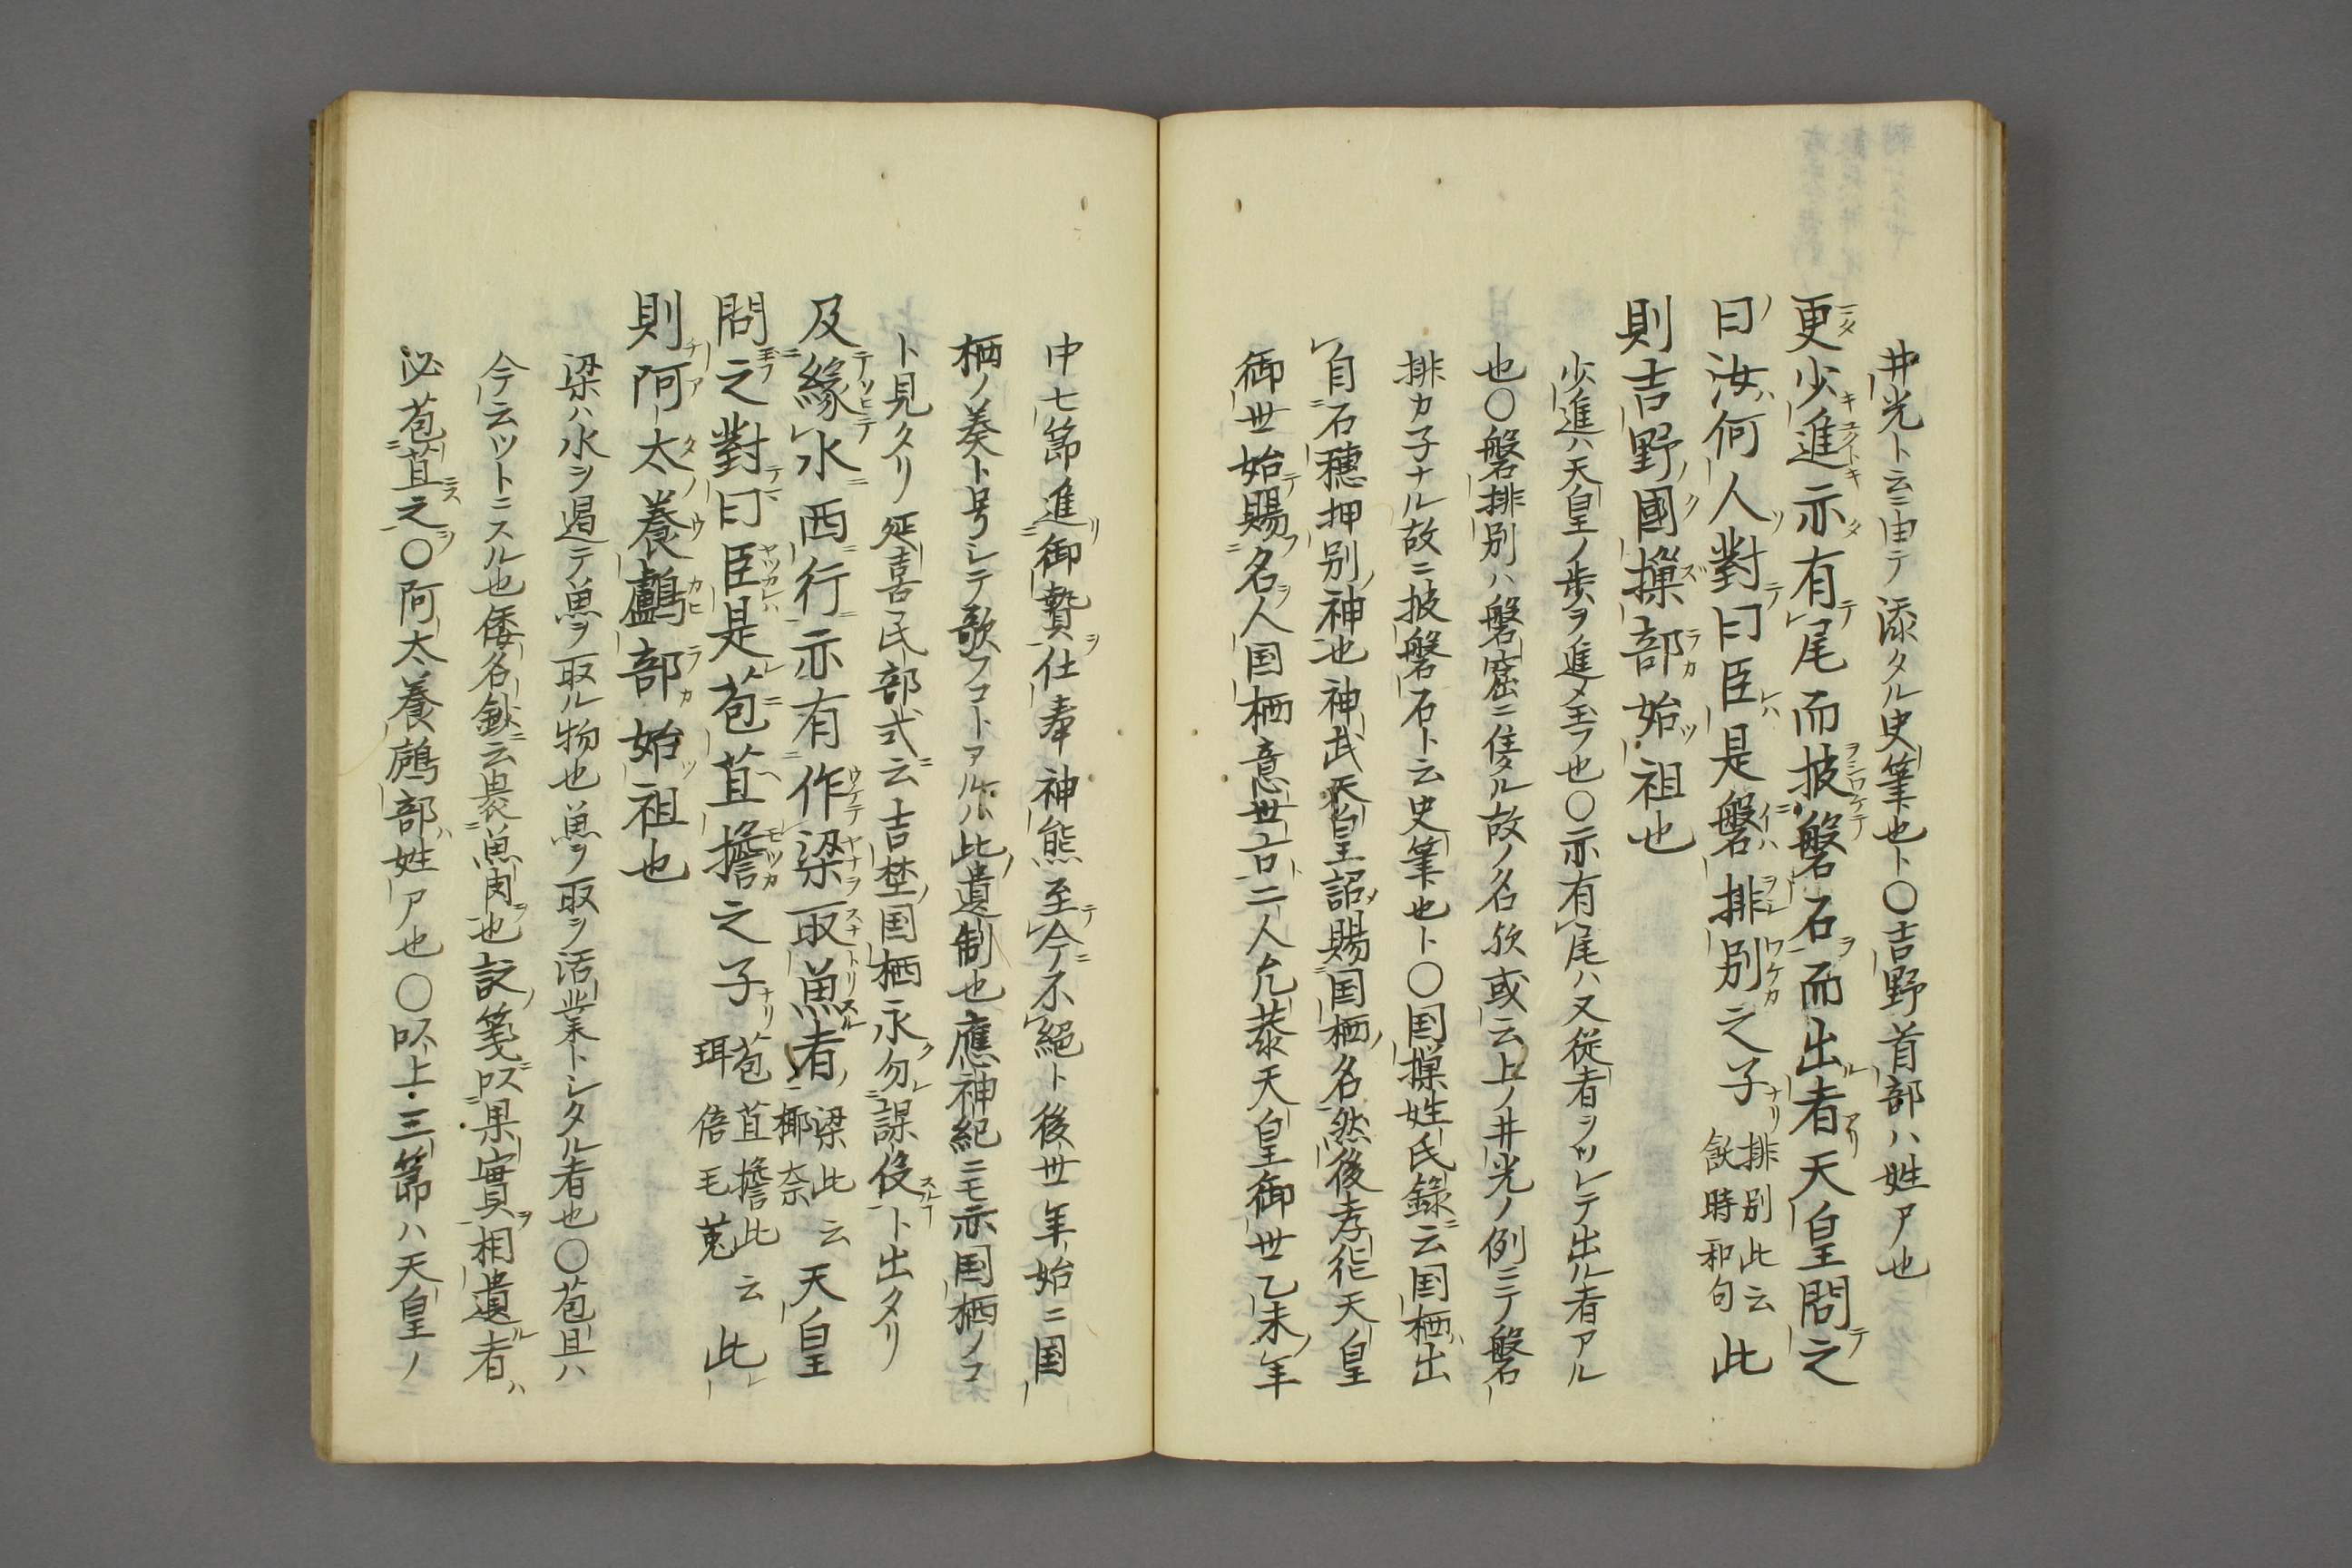 井光ト云ニ由テ添タル史筆也ト〇吉野首部ハ姓ア也
更少進亦有尾而披磐石而出者天皇問之
曰汝何人對曰臣是磐排別之子排別此云飫時和句此
則吉野國樔部始祖也
少進ハ天皇ノ歩ヲ進メ玉フ也〇亦有尾ハ又従者ヲツレテ出ル者アル
也〇磐排別ハ磐窟ニ住タル故ノ名欤或云上ノ井光ノ例ニテ磐
排カ子ナル故ニ披磐石ト云史筆也ト〇国樔姓氏録云国栖出
自石穂押別神也神武天皇詔賜国栖名然後孝徳天皇
御世始賜名人国栖意世古二人允恭天皇御世乙未年
中七節進御贄仕奉神熊至今不絶ト後世年始ニ国
栖ノ奏ト号シテ歌フコトアルハ此遺制也應神紀ニモ亦国栖ノコ
ト見タリ延喜民部式云吉埜国栖永勿課役ト出タリ
及縁水西行亦有作梁取魚者梁此云椰奈天皇
問之對曰臣是苞苴擔之子苞苴擔此云珥倍毛菟此
則阿太養鸕部始祖也
梁ハ水ヲ遏テ魚ヲ取ル物也魚ヲ取ヲ活業トシタル者也〇苞苴ハ
今云ツトニスル也倭名鈔云裹魚肉也訳箋以果實相遺者ハ
必苞苴之〇阿太養鸕部ハ姓ア也〇以上三節ハ天皇ノ